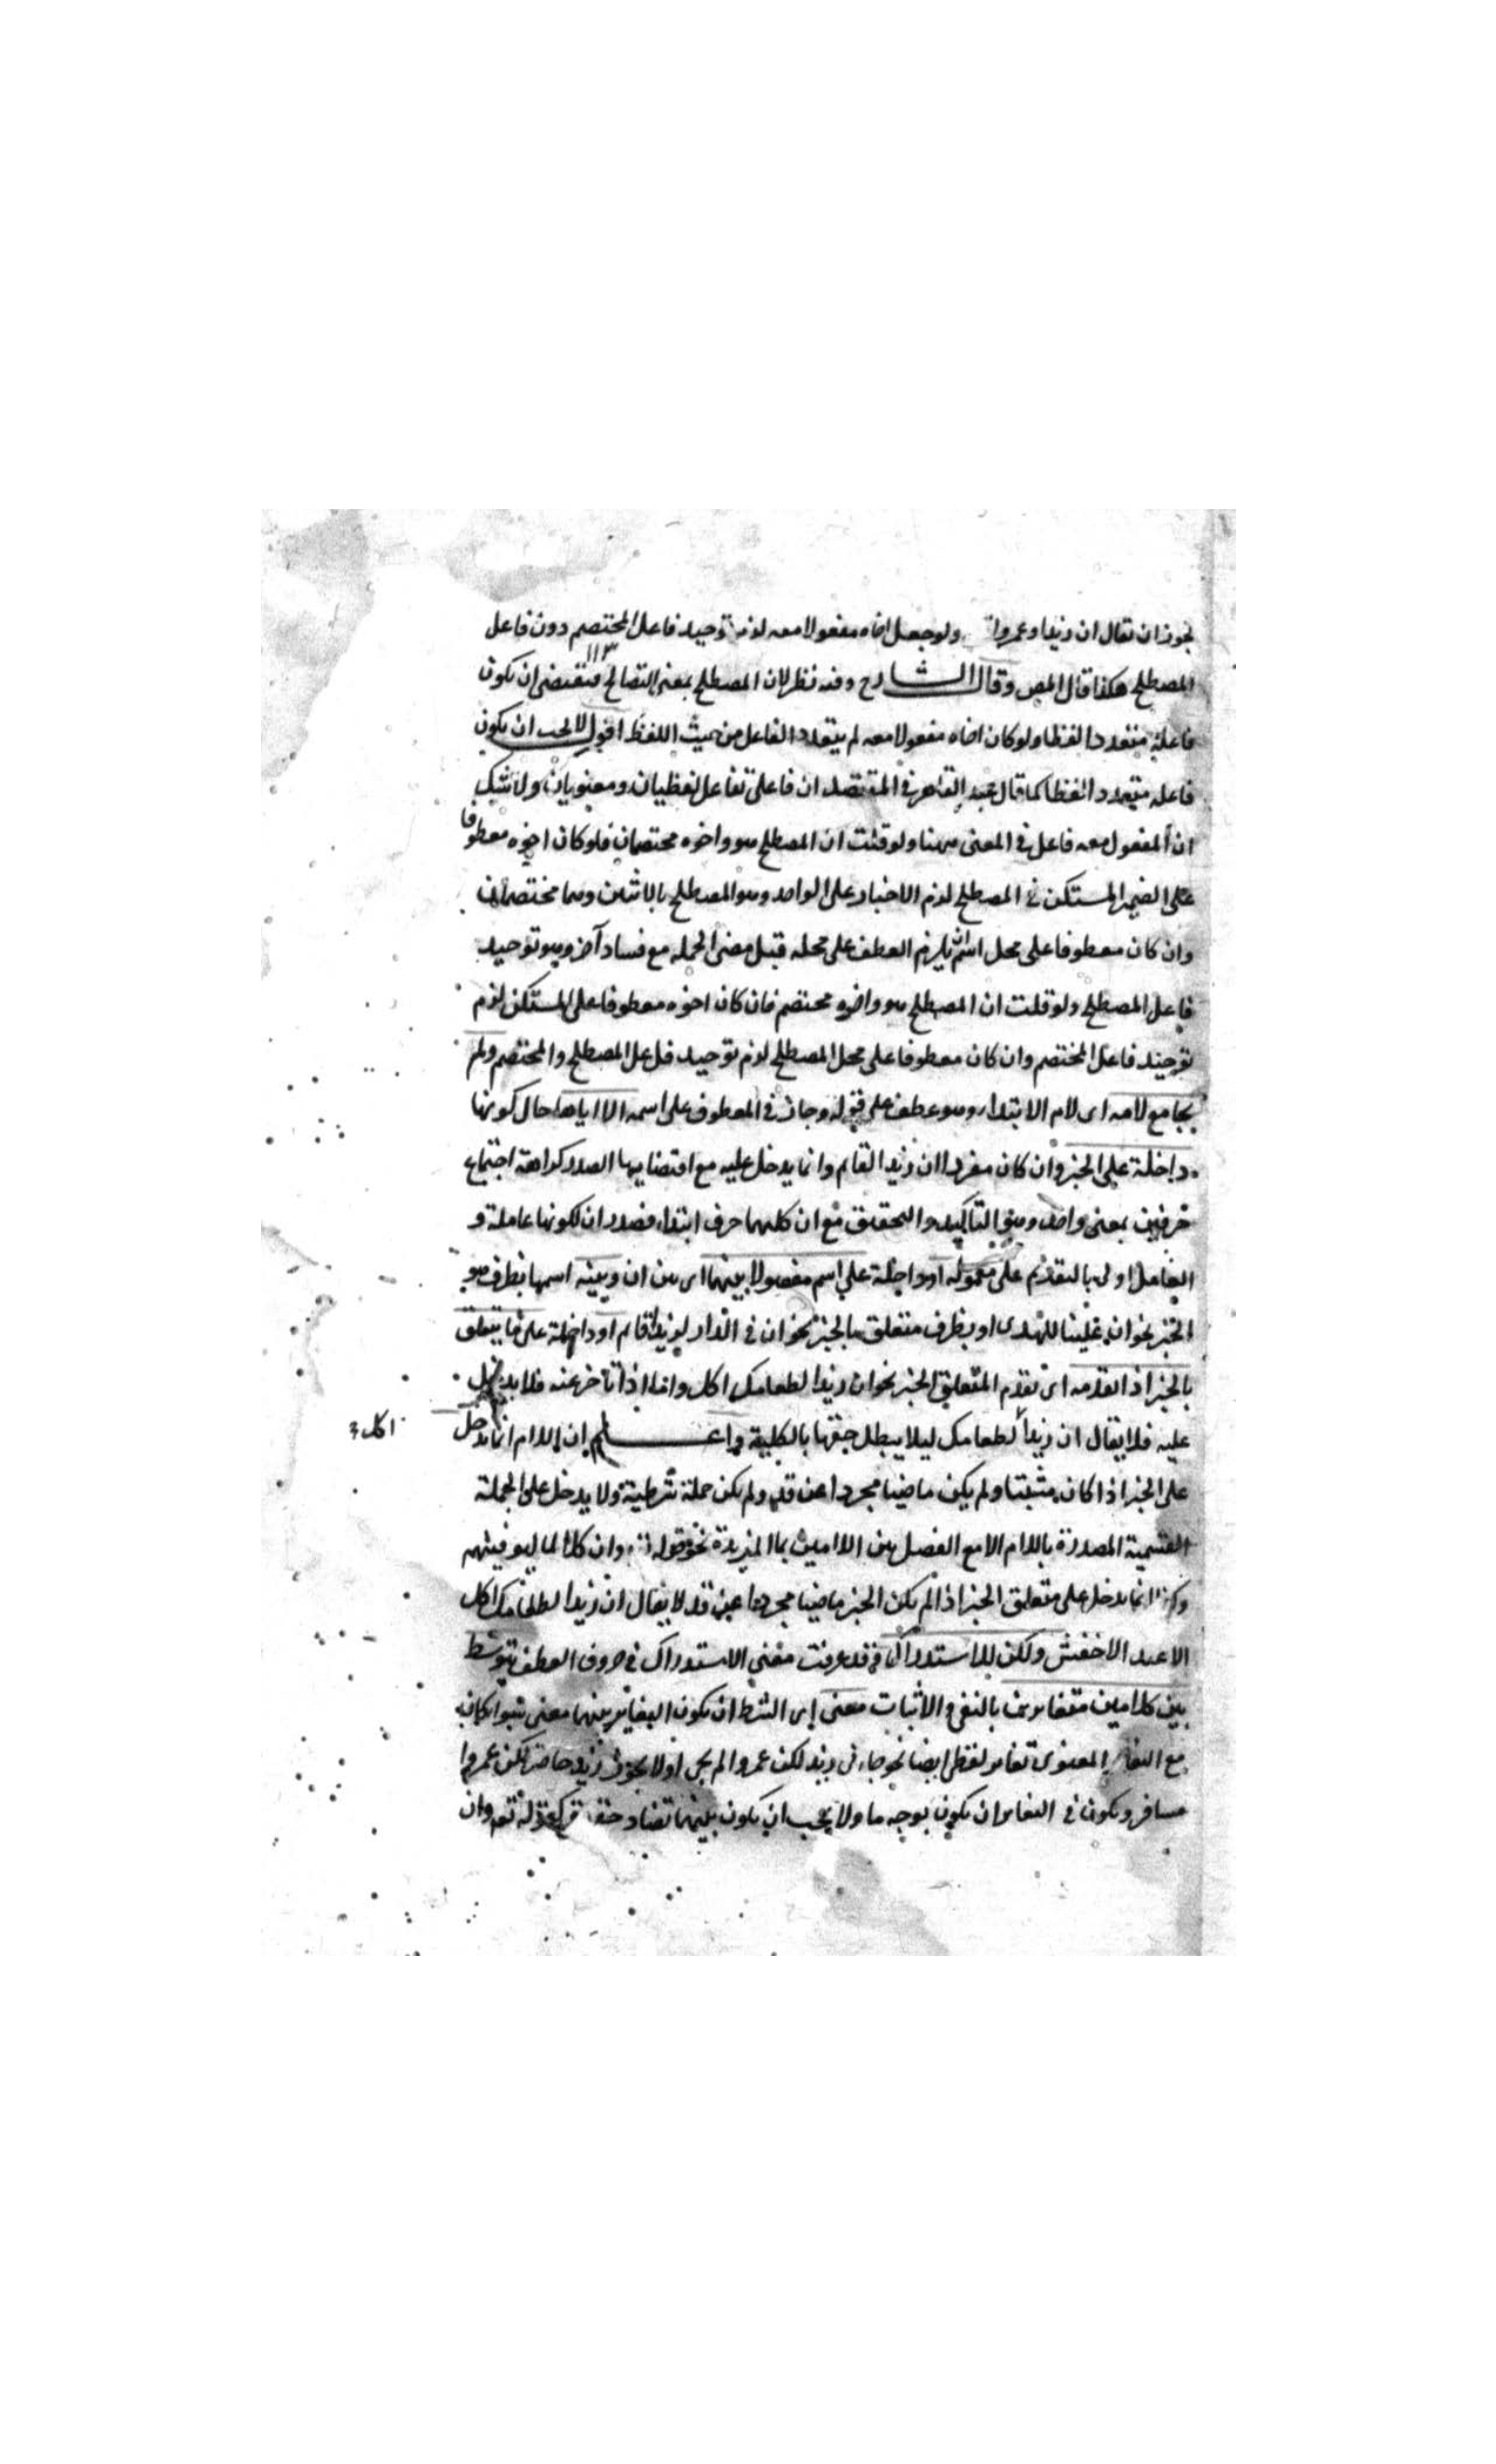 يجوز ان يقال ان زيدا وعمروا ولو جعل اخاه مفعولا معه لزم توحيد فاعل المختصم دون فاعل
١١٣
المصطلح هكذا قال المص وقال الشارح وفيه نظر لان المصطلح بمعنى التصالح فيقتضى ان يكون
فاعله متعددا لفظا ولو كان اخاه مفعولا معه لم يتعدد الفاعل من حيث اللفظ اقول لا يجب ان يكون
فاعله متعددا لفظا كما قال عبد القاهر فى المقتصد ان فاعلى تفاعل لفظيان ومعنويان ولا شك
ان المفعول معه فاعل فى المعنى ههنا ولو قلت ان المصطلح هو واخوه مختصمان فلو كان اخوه معطوفا
على الضمير المستكن فى المصطلح لزم الاخبار على الواحد وهو المصطلح بالاثنين وهما مختصمان
وان كان معطوفا على محل اسم ان يلزم العطف على محله قبل مضى الجمله مع فساد آخر وهو توحيد
فاعل المصطلح ولو قلت ان المصطلح هو واخوه مختصم فان كان اخوه معطوفا على المستكن لزم
توحيد فاعل المختصم وان كان معطوفا على محل المصطلح لزم توحيد فاعل المصطلح والمختصم ولم
يجامع لامه اى لام الابتداء وهو عطف على قوله وجاز فى المعطوف على اسمه الا اياها حال كونها
داخلة على الخبر وان كان مفردا ان زيدا لقايم وانما يدخل عليه مع اقتضايها الصدر كراهة اجتماع
حرفين بمعنى واحد وهو التاكيد والتحقيق مع ان كليهما حرف ابتداء فصدر ان لكونها عاملة و
العامل اولى بالتقديم على معموله او داخلة على اسم مفصولا بينهما اى بين ان وبينه اسمها بظرف هو
الخبر نحو ان علينا للهدى او بظرف متعلق بالخبر نحو ان فى الدار لزيدا قايم او داخلة على ما يتعلق
بالخبر اذا تقدمه اى تقدم المتعلق الخبر نحو ان زيدا لطعامك اكل واما اذا تاخر عنه فلا يدخل
عليه فلا يقال ان زيدا لطعامك ليلا يبطل حقها بالكلية واعلم ان اللام انما يدخل
اكل
على الخبر اذا كان مثبتا ولم يكن ماضيا مجردا عن قد ولم يكن جملة شرطية ولا يدخل على الجملة
القسمية المصدرة باللام الا مع الفصل بين اللامين بما المزيدة نحو قوله تع وان كلا لما ليوفينهم
وكذا انما يدخل على متعلق الخبر اذا لم يكن الخبر ماضيا مجردا عن قد لا يقال ان زيدا لطعامك اكل
الا عند الاخفش ولكن للاستدراك قد عرفت معنى الاستدراك فى حروف العطف يتوسط
بين كلامين متغايرين بالنفى والاثبات معنى اى الشرط ان يكون التغاير بينهما معنى سوا كان
مع التغاير المعنوى تغاير لفظى ايضا نحو جاءنى زيد لكن عمروا لم يجى او لا يجوز زيد حاضر لكن عمروا
مسافر ويكون فى التغاير ان يكون بوجه ما ولا يجب ان يكون بينهما تضاد كقوله تع وان